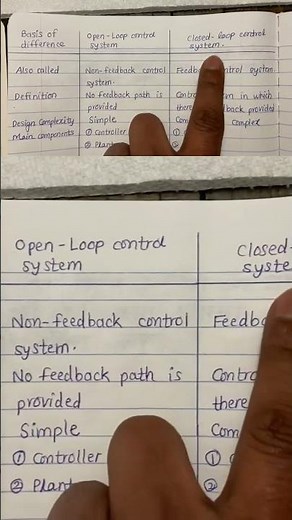 Basis of difference
Open-Loop control system
Closed-loop control system.
Also called
Non-feedback control system.
Feedb ontrol system
Definition
No feedback path is provided
Contr m in which there back provided
Design Complexity
Simple
Com complex
Main components
① Controller
①
② Plant
Open-Loop control system
Closed- syste
Non-feedback control system.
Feedb
No feedback path is provided
Contro there
Simple
Com
① Controller
①
② Plant
②